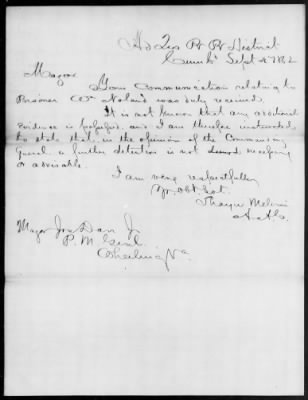 Hd Qrs R R District
Cumb'd Sept 4 1862
Major
Your Communication relating to
Prisoner Wm Noland was duly received.
It is not known that any additional
evidence is and I am therefore instructed
to state that in the opinion of the Commanding
Genl. a further detention is not deemed necessary
or advisable.
I am very respectfully
Yr obt Svt
Thayer Melvin
A. A. G.
Major Jos Darr Jr
P. M. Genl.
Wheeling Va